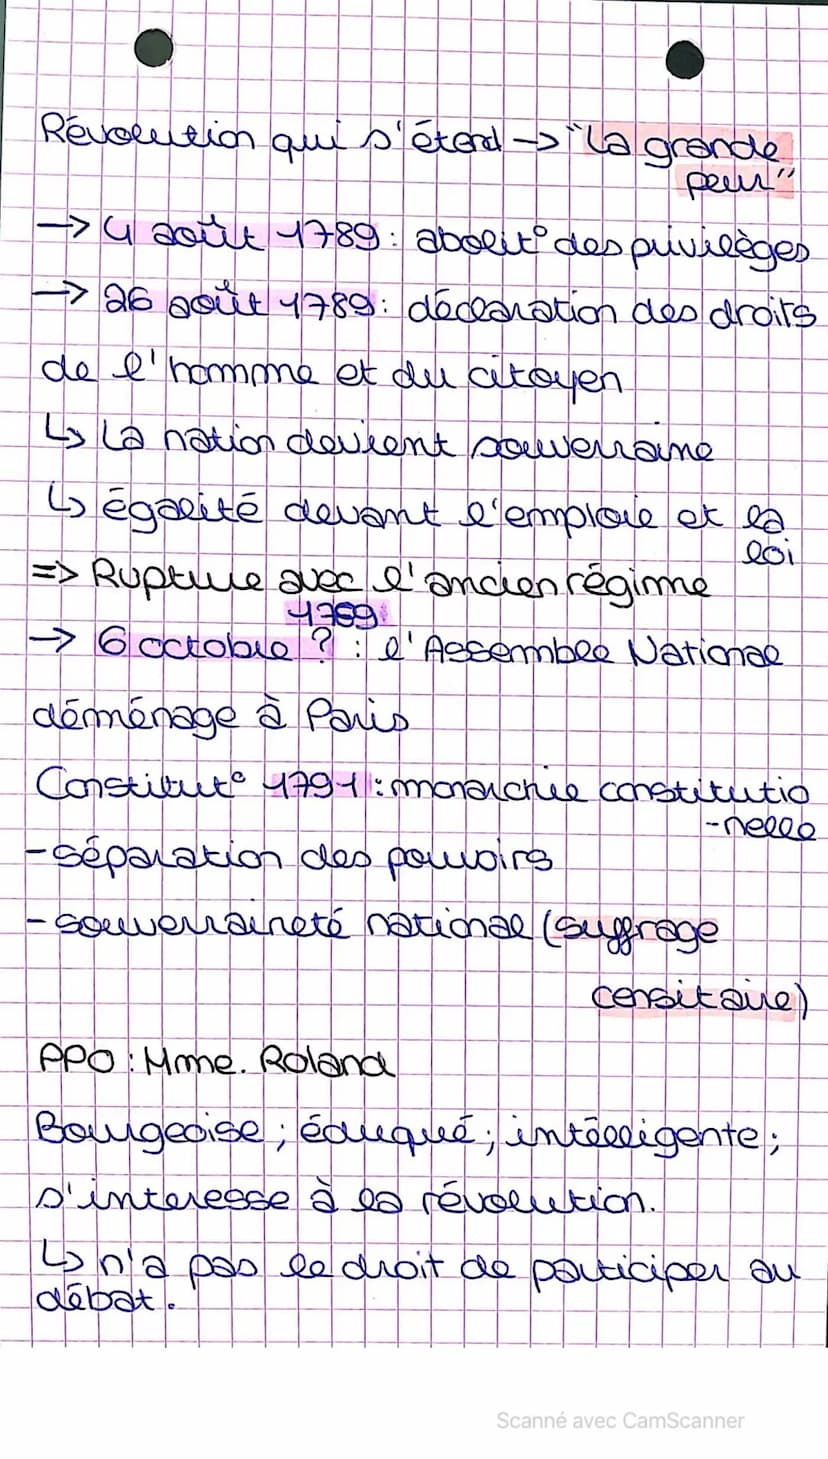 Révolution qui s'étend -> "La grande
peur"
-> 4 août 1789 : abolit° des privilèges
-> 26 août 1789 : déclaration des droits
de l'homme et du citoyen
↳ La nation devient souverraine
↳ égalité devant l'emploie et la
loi
=> Rupture avec l'ancien régime
1789
-> 6 octobre ? : l'Assemblée Nationale
déménage à Paris
Constitut° 1791 : monarchie constitutio
-nelle
- séparation des pouvoirs
- souverraineté national (suffrage
censitaire)
PPO : Mme. Roland
Bourgeoise ; éduqué ; intélligente ;
s'interesse à la révolution.
↳ n'a pas le droit de participer au
débat.
Scanné avec CamScanner